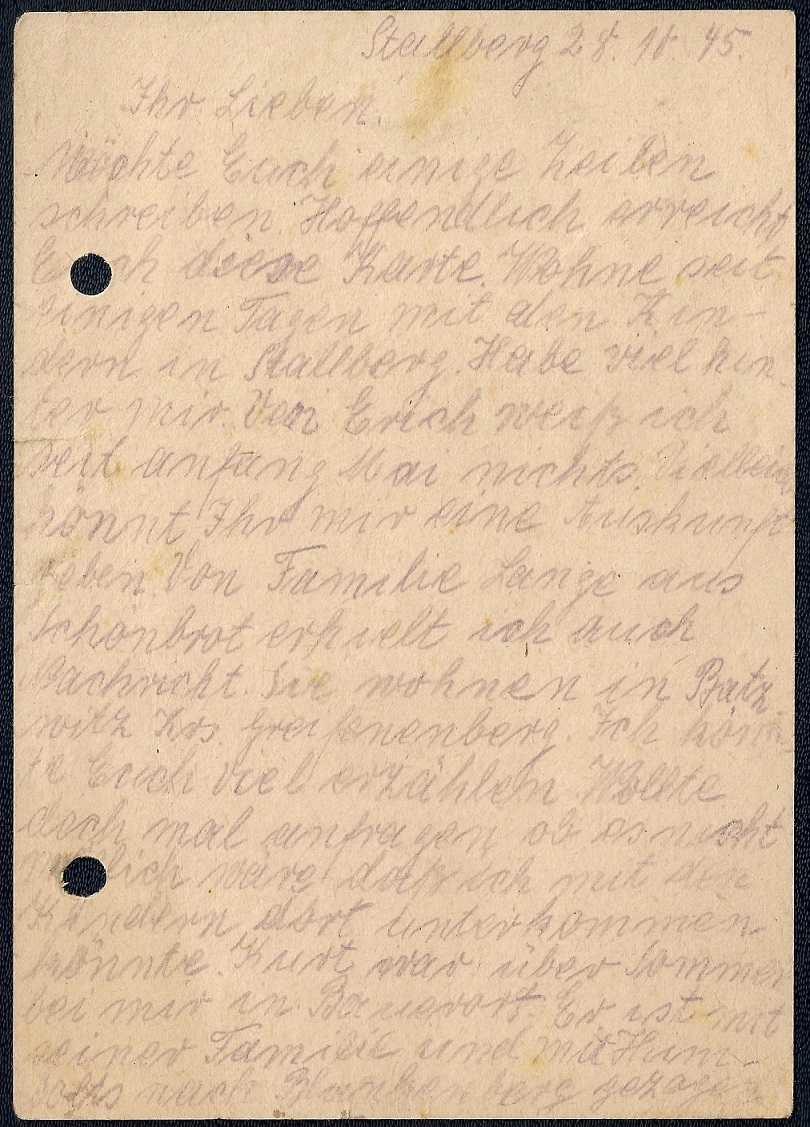 Stallberg 28. 10. 45.
Ihr Lieben.
Möchte Euch einige Zeilen
schreiben. Hoffendlich erreicht
Euch diese Karte. Wohne seit
einigen Tagen mit den Kin-
dern in Stallberg. Habe viel hin-
ter mir. Von Erich weiß ich
seit anfang Mai nichts.
könnt Ihr mir eine Auskunft
geben. Von Familie Lange aus
Schönbrot erhielt ich auch
Nachricht. Sie wohnen in Batz
witz Krs. Greifenenberg. Ich könn-
te Euch viel erzählen. Wollte
doch mal anfragen ob es nicht
möglich wäre daß ich mit den
Kindern dort unterkommen
könnte. Kurt war über Sommer
bei mir in Er ist mit
seiner Familie und mit Hum-
bolts nach Blankenberg gezogen